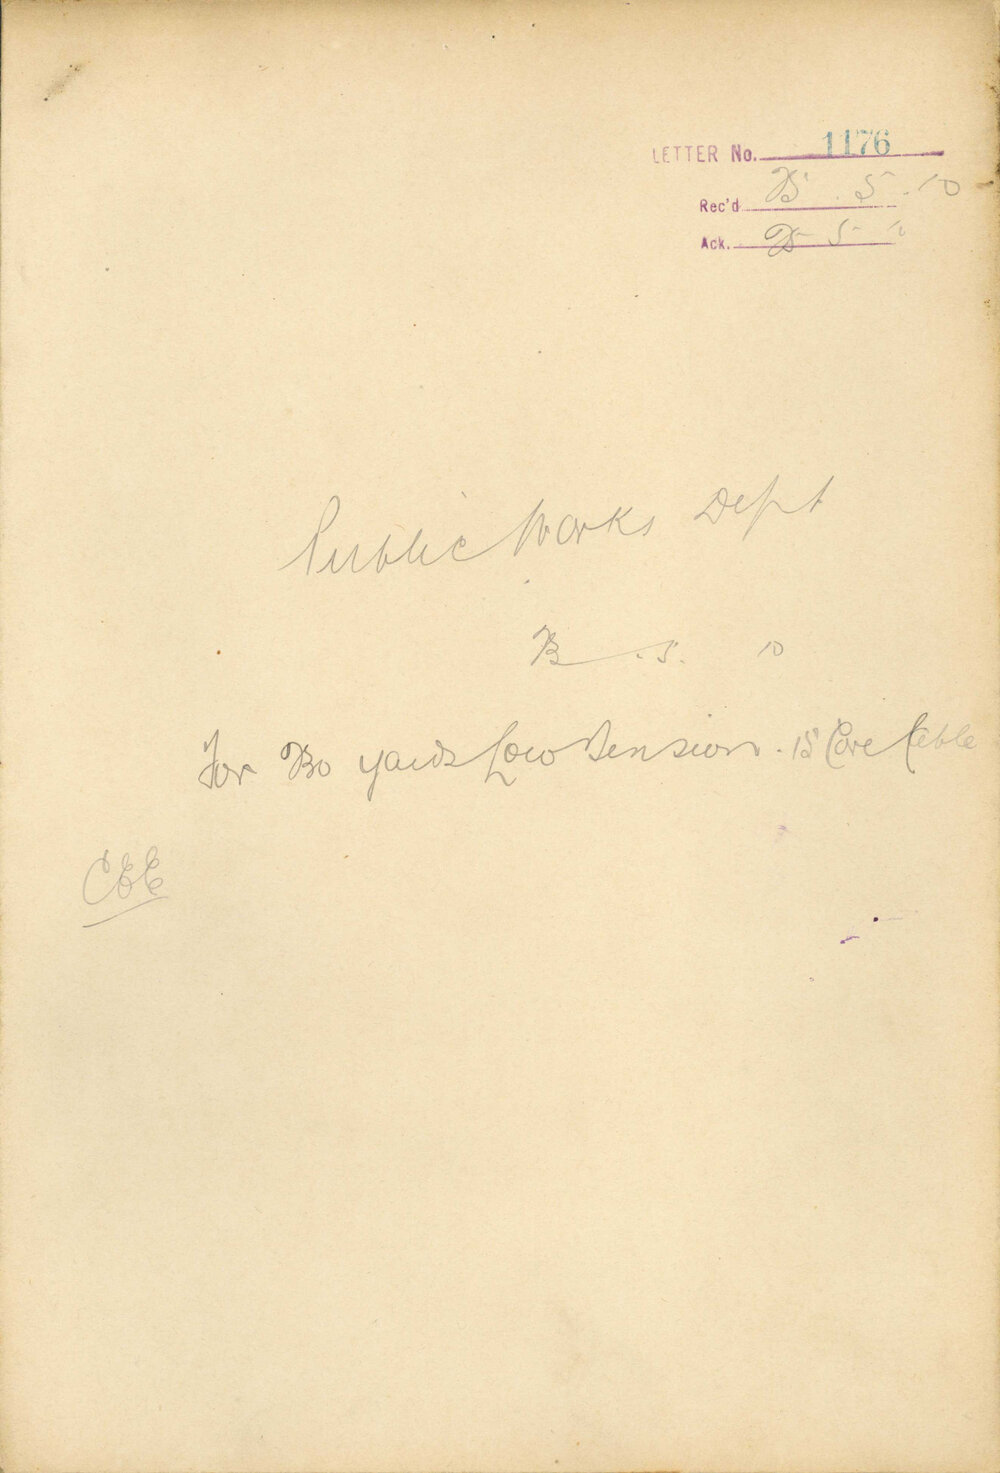 LETTER No. 1176
Rec'd 25 . 5 . 10
Ack. 25 - 5 - 10
Public Works Dept
. 5. 10
For yards Low Tension . 15 Core Cable